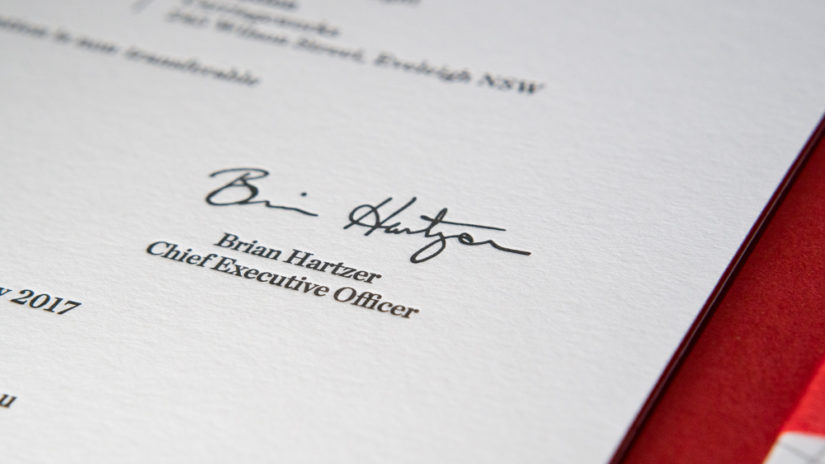 Carriageworks
Wilson Street, Eveleigh NSW
is non transferable
Brian Hartzer
Brian Hartzer
Chief Executive Officer
2017